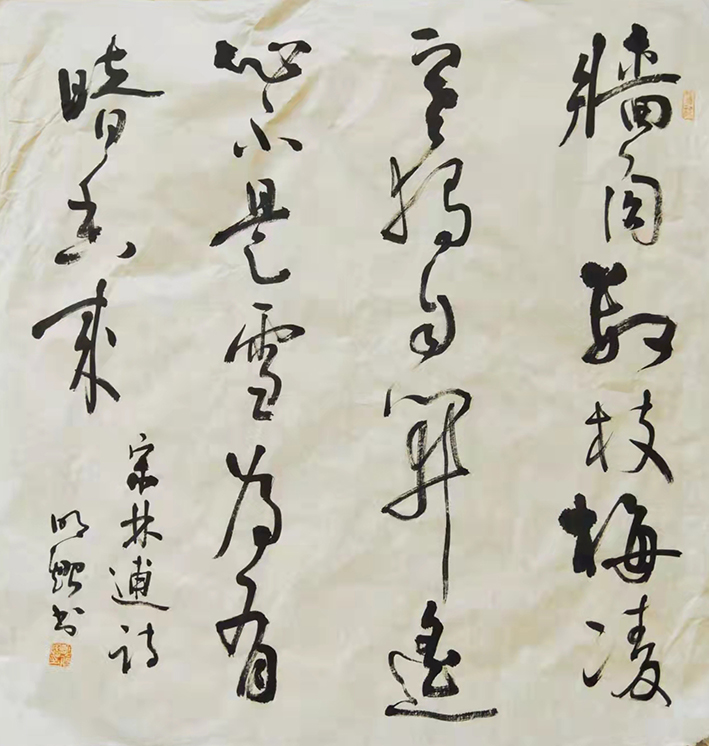 牆角數枝梅凌
寒獨自開遙
知不是雪為有
暗香來
宋林逋詩
明 書